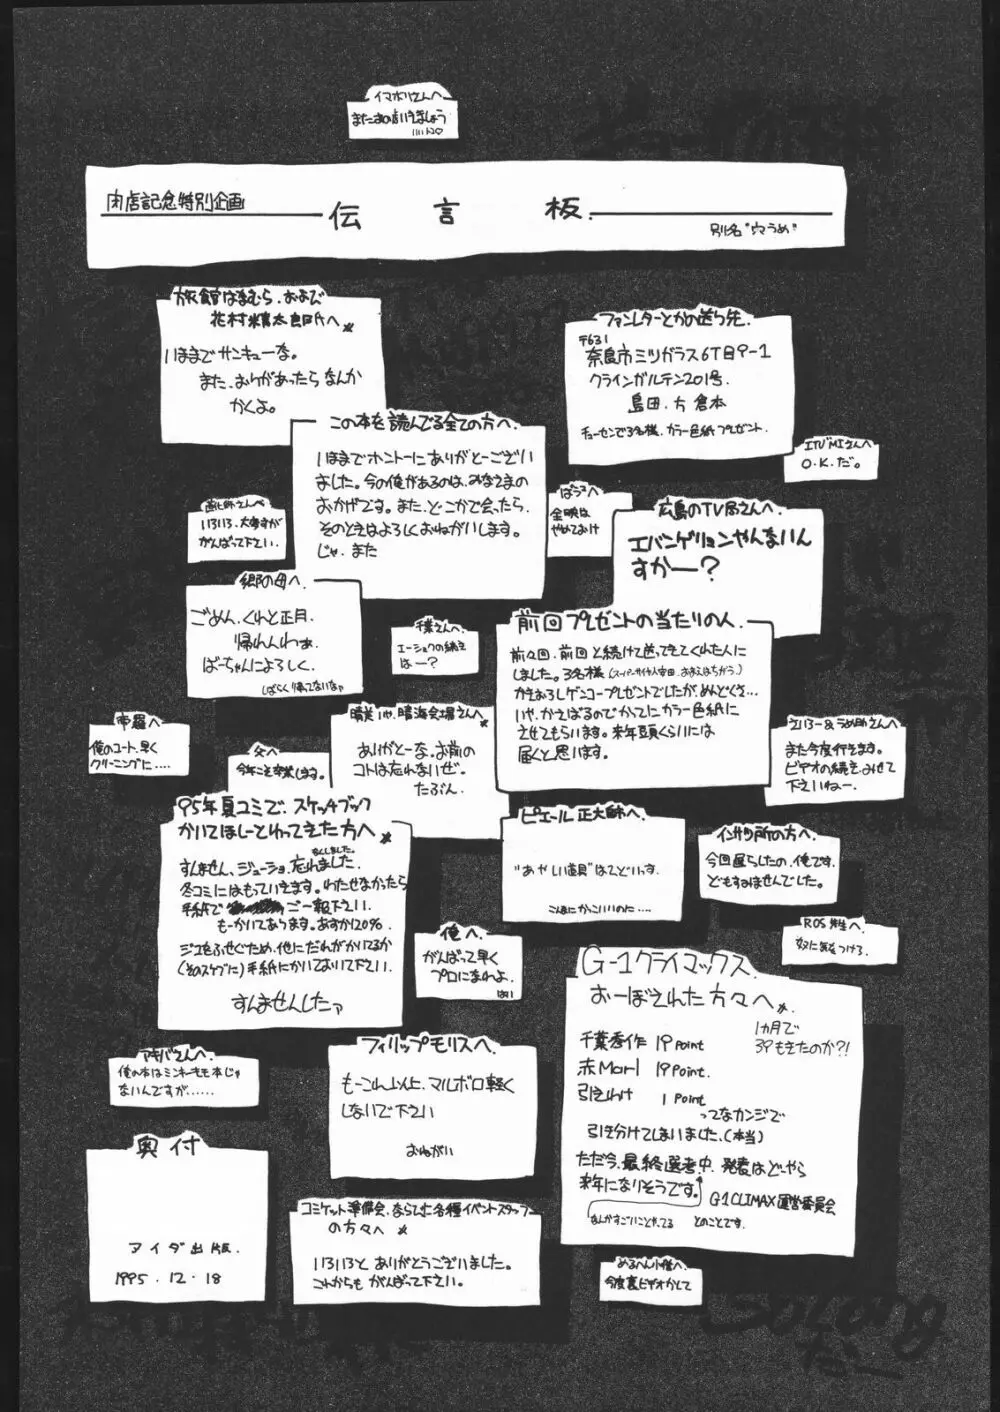 イマホリさんへ
またあの店いきましょう
肉虐記念特別企画
伝言板
別名"穴うめ"
旅館はまむら、および
花村精太郎氏へ
いままでサンキューな。
また、おりがあったらなんか
かくよ。
ファンレターとかの送り先
〒631
奈良市ミツガラス6丁目9-1
クラインガルテン201号
島田.方 倉本
チューセンで3名様、カラー色紙プレゼント.
ITU'MIさんへ
O.K.だ。
この本を読んでる全ての方へ
いままでホントーにありがとーござい
ました。今の俺があるのは、みなさまの
おかげです。また、どこかで会ったら、
そのときはよろしくおねがいします。
じゃ、また
いろいろ、大変すが
がんばって下さい。
やめておけ
広島のTV局さんへ
エバンゲリヨンやんないん
すかー?
郷の母へ
ごめん、くれと正月、
帰れんわぁ
ばーちゃんによろしく
しばらく帰ってないなァ
千葉さんへ
エーショクの続き
はー?
前回プレゼントの当たりの人
前々回、前回と続けて送ってきてくれた人に
しました。3名様
かきおろしゲンコープレゼントでしたが、めんどくさ…
いや、かさばるのでかってにカラー色紙に
させてもらいます。来年頭くらいには
届くと思います。
帝羅へ
俺のコート、早く
クリーニングに....
父へ
今年こそ卒業します。
晴美いや、晴海会場さんへ
ありがとーな、お前の
コトは忘れないぜ。
たぶん.
また今度行きます。
ビデオの続き、みせて
下さいねー.
95年夏コミで、スケッチブック
かいてほしーとわってきた方へ
すんません、ジューショ、忘れました.
なくしました。
冬コミにはもっていきます。わたせなかったら
手紙で ご一報下さい.
もーかいてあります。あすか120%
ジエをふせぐため、他にだれがかいてるか
(そのスケブに)手紙にかいておいて下さい.
すんませんしたァ
ピエール正大師へ
"あやしい道具"はてどいっす.
こんなにかっこいいのに....
インサツ所の方へ
今回遅らしたの、俺です。
どもすみませんでした。
ROS先生へ
奴に気をつけろ.
俺へ
がんばって早く
プロになれよ.
はい
G-1クライマックス
おーぼされた方々へ
1ヵ月で
39もきたのか?!
千葉秀作 19 Point
赤Marl 19 Point.
引きわけ 1 Point
ってなカンジで
引き分けてしまいました.(本当)
ただ今、最終選考中、発表はどーやら
来年になりそうです。
G-1CLIMAX運営委員会
なんかすごいことやってる とのことです.
アキバさんへ
俺の本はミンキーモモ本じゃ
ないんですが......
フィリップモリスへ
もーこれ以上、マルボロ軽く
しないで下さい
おねがい
奥付
アイダ出版.
1995.12.18
コミケット準備会、ならびに各種イベントスタッフ
の方々へ
いろいろと、ありがとうございました。
これからも がんばって下さい。
めるへん小僧へ
今度裏ビデオかして
So Long
だー